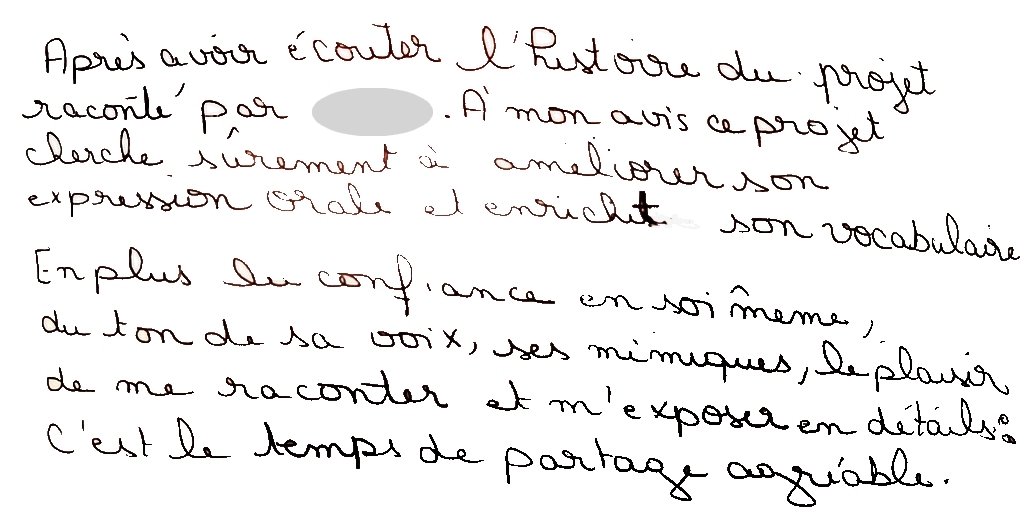 Après avoir écouter l'histoire du projet
raconté par . A mon avis ce projet
cherche sûrement à ameliorer son
expression orale et enrichit son vocabulaire
En plus du confiance en soi même,
du ton de sa voix, ses mimiques, le plaisir
de me raconter et m'exposer en détails:
C'est le temps de partage agréable.